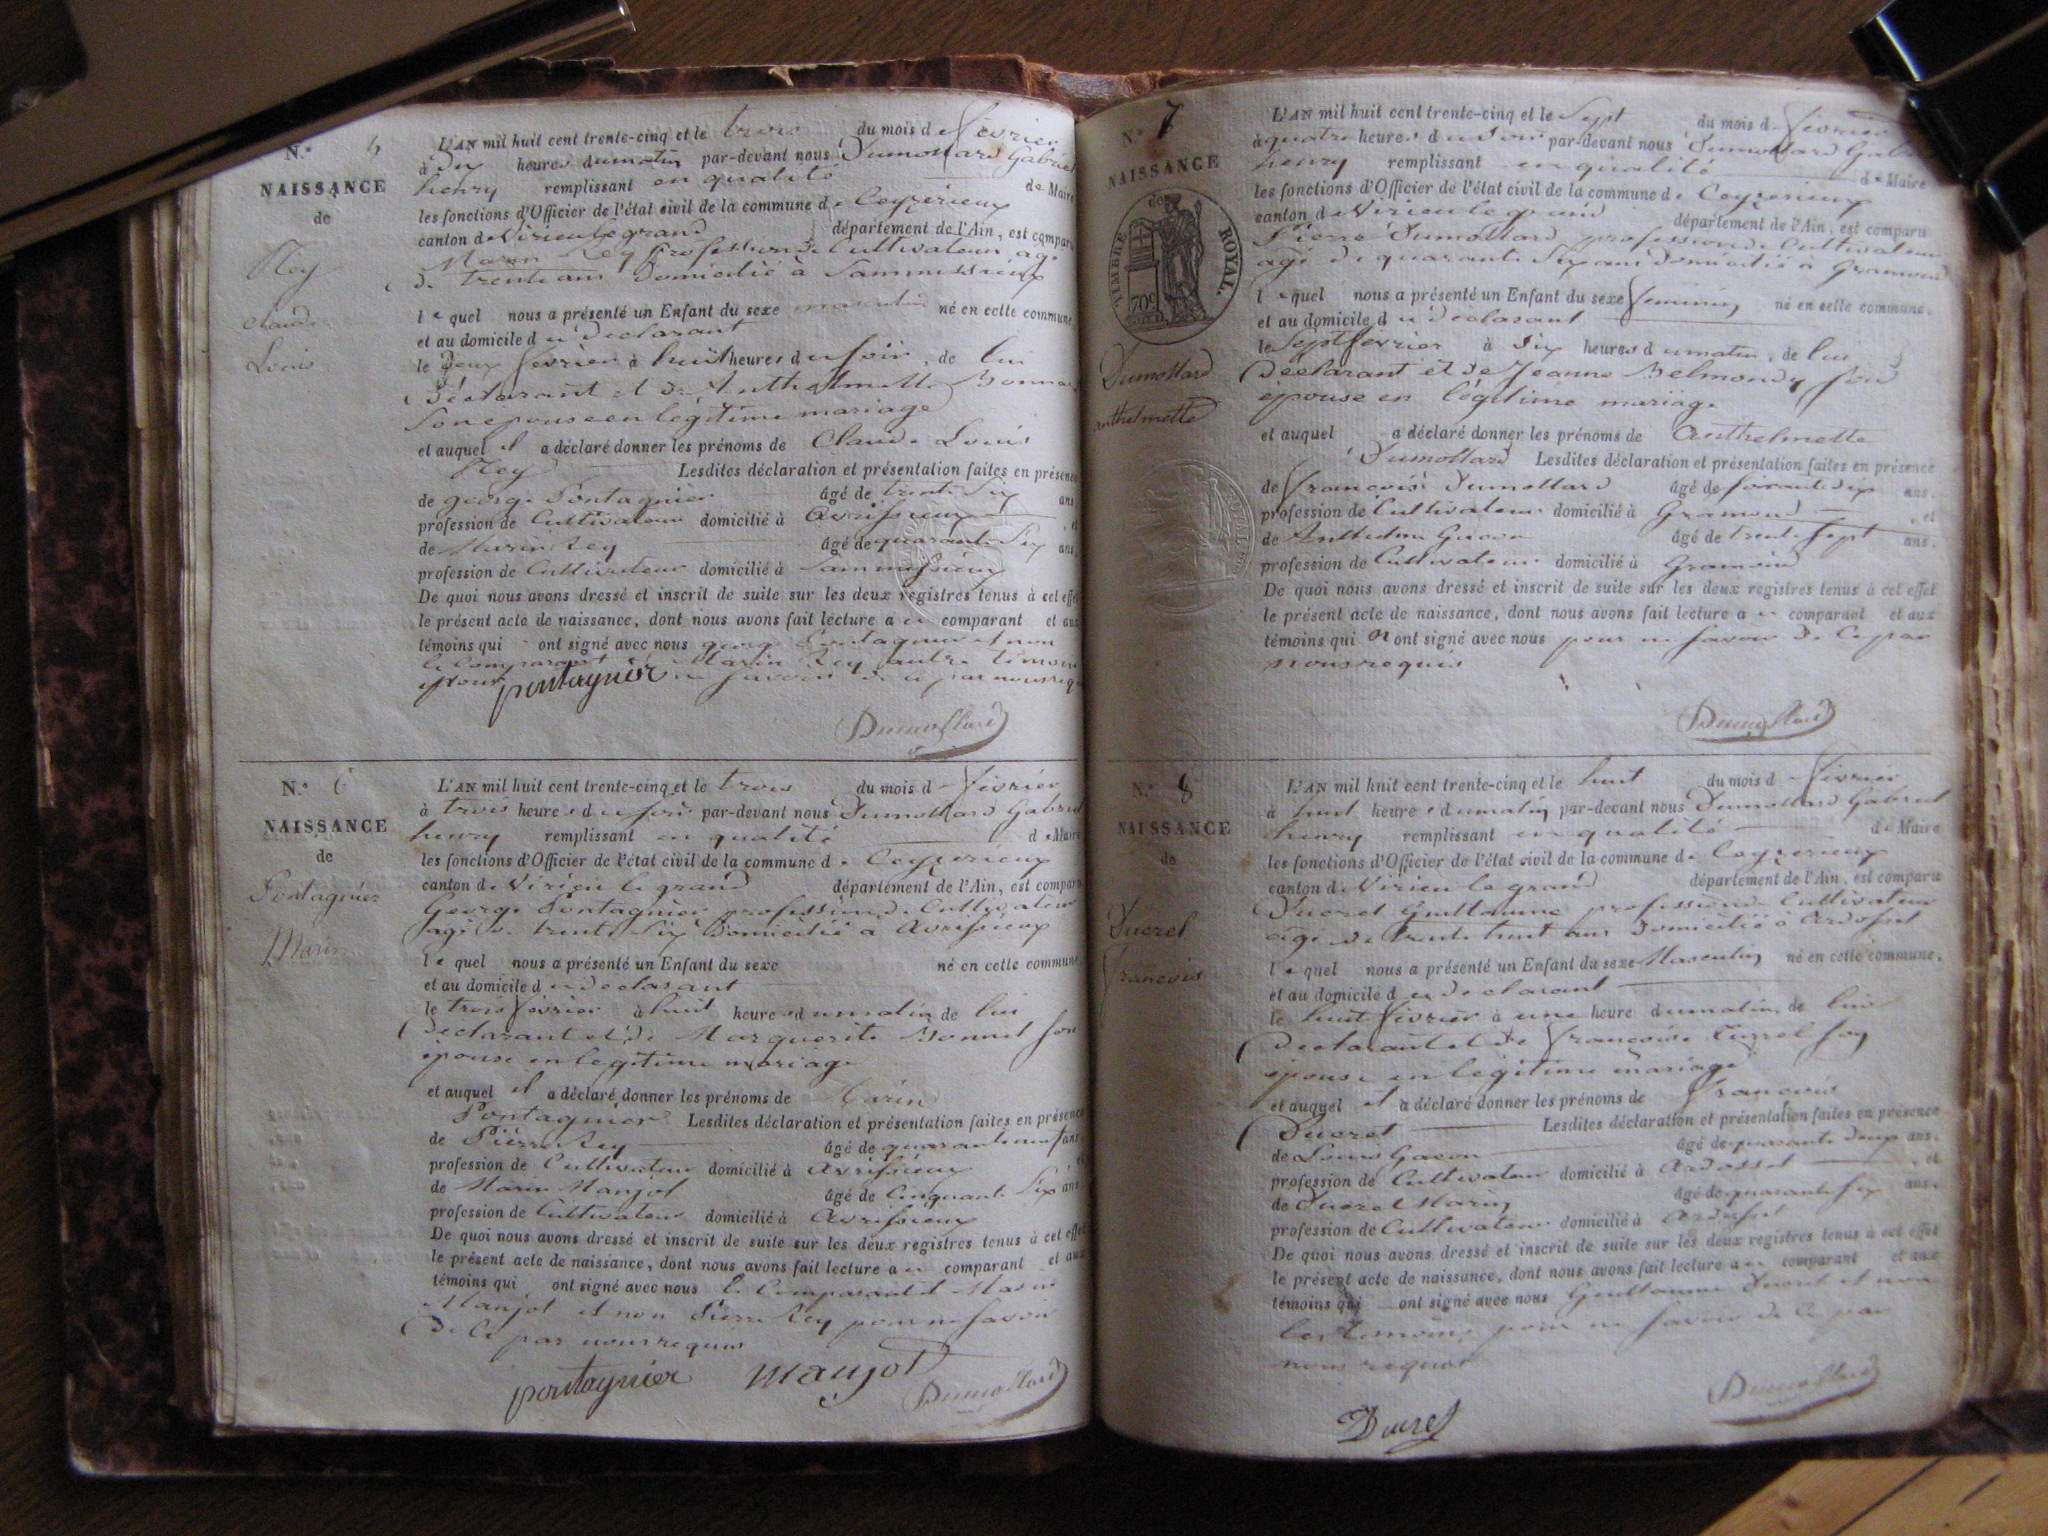 N.° 5
NAISSANCE
de
Rey
Claude
Louis
L'AN mil huit cent trente-cinq et le trois du mois de février
à dix heures du matin par-devant nous Dumollard Gabriel
henry remplissant en qualité de Maire
les fonctions d'Officier de l'état civil de la commune de Ceyzerieux
canton de Virieu le grand département de l'Ain, est comparu
Marin Rey profession de Cultivateur agé
de trente ans domicilié à Sammissieux
lequel nous a présenté un Enfant du sexe masculin né en cette commune,
et au domicile du déclarant
le deux février à huit heures du soir, de lui
déclarant et de Anthelmette Bonnard
son epouse en légitime mariage
et auquel il a déclaré donner les prénoms de Claude Louis
Rey Lesdites déclaration et présentation faites en présence
de george Pontagnier âgé de trente six ans,
profession de Cultivateur domicilié à Avrissieux, et
de Marin Rey âgé de quarante six ans,
profession de Cultivateur domicilié à Sammissieux
De quoi nous avons dressé et inscrit de suite sur les deux registres tenus à cet effet
le présent acte de naissance, dont nous avons fait lecture au comparant et aux
témoins qui ont signé avec nous george Pontagnier et non
le Comparant et Marin Rey autre témoin
pour ne savoir de ce par nous requis
pontagnier
Dumollard
N.° 6
NAISSANCE
de
Pontagnier
Marin
L'AN mil huit cent trente-cinq et le trois du mois de février
à trois heures du soir par-devant nous Dumollard Gabriel
henry remplissant en qualité de Maire
les fonctions d'Officier de l'état civil de la commune de Ceyzerieux
canton de Virieu le grand département de l'Ain, est comparu
George Pontagnier profession de Cultivateur
agé de trente six domicilié à Avrissieux
lequel nous a présenté un Enfant du sexe né en cette commune,
et au domicile du declarant
le trois février à huit heures du matin, de lui
declarant et de Marguerite Bonnet son
épouse en legitime mariage
et auquel il a déclaré donner les prénoms de Marin
Pontagnier Lesdites déclaration et présentation faites en présence
de Pierre Rey âgé de quarante neuf ans,
profession de Cultivateur domicilié à Avrissieux et
de Marin Manjot âgé de Cinquante six ans
profession de Cultivateur domicilié à Avrissieux
De quoi nous avons dressé et inscrit de suite sur les deux registres tenus à cet effet
le présent acte de naissance, dont nous avons fait lecture au comparant et aux
témoins qui ont signé avec nous le Comparant et Marin
Manjot et non Pierre Rey pour ne savoir
de ce par nous requis
pontagnier manjot
Dumollard
N.° 7
NAISSANCE
de
TIMBRE ROYAL
70c
Dumollard
anthelmette
L'AN mil huit cent trente-cinq et le sept du mois de février
à quatre heures du soir par-devant nous Dumollard Gabriel
henry remplissant en qualité de Maire
les fonctions d'Officier de l'état civil de la commune de Ceyzerieux
canton de Virieu le grand département de l'Ain, est comparu
Pierre Dumollard profession de Cultivateur
agé de quarante six ans domicilié à Gramond
lequel nous a présenté un Enfant du sexe féminin né en cette commune,
et au domicile du declarant
le sept fevrier à six heures du matin, de lui
declarant et de Jeanne Belmondy son
épouse en légitime mariage
et auquel a déclaré donner les prénoms de Anthelmette
Dumollard Lesdites déclaration et présentation faites en présence
de François Dumollard âgé de soixante dix ans,
profession de Cultivateur domicilié à Gramond, et
de Anthelme âgé de trente sept ans,
profession de Cultivateur domicilié à Gramond
De quoi nous avons dressé et inscrit de suite sur les deux registres tenus à cet effet
le présent acte de naissance, dont nous avons fait lecture au comparant et aux
témoins qui n'ont signé avec nous pour ne savoir de ce par
nous requis
Dumollard
N.° 8
NAISSANCE
de
Ducret
francois
L'AN mil huit cent trente-cinq et le huit du mois de février
à huit heures du matin par-devant nous Dumollard Gabriel
henry remplissant en qualité de Maire
les fonctions d'Officier de l'état civil de la commune de Ceyzerieux
canton de Virieu le grand département de l'Ain, est comparu
Ducret Guillaume profession de Cultivateur
agé de trente huit ans domicilié à Ardosset
lequel nous a présenté un Enfant du sexe Masculin né en cette commune,
et au domicile du declarant
le huit février à une heure du matin, de lui
declarant et de françoise son
épouse en légitime mariage
et auquel il a déclaré donner les prénoms de francois
Ducret Lesdites déclaration et présentation faites en présence
de Louis Gacon âgé de quarante deux ans,
profession de Cultivateur domicilié à Ardosset, et
de Ducret Marin âgé de quarante six ans,
profession de Cultivateur domicilié à Ardosset
De quoi nous avons dressé et inscrit de suite sur les deux registres tenus à cet effet
le présent acte de naissance, dont nous avons fait lecture au comparant et aux
témoins qui ont signé avec nous Guillaume Ducret et non
les témoins pour ne savoir de ce par
nous requis
Dumollard
Ducret